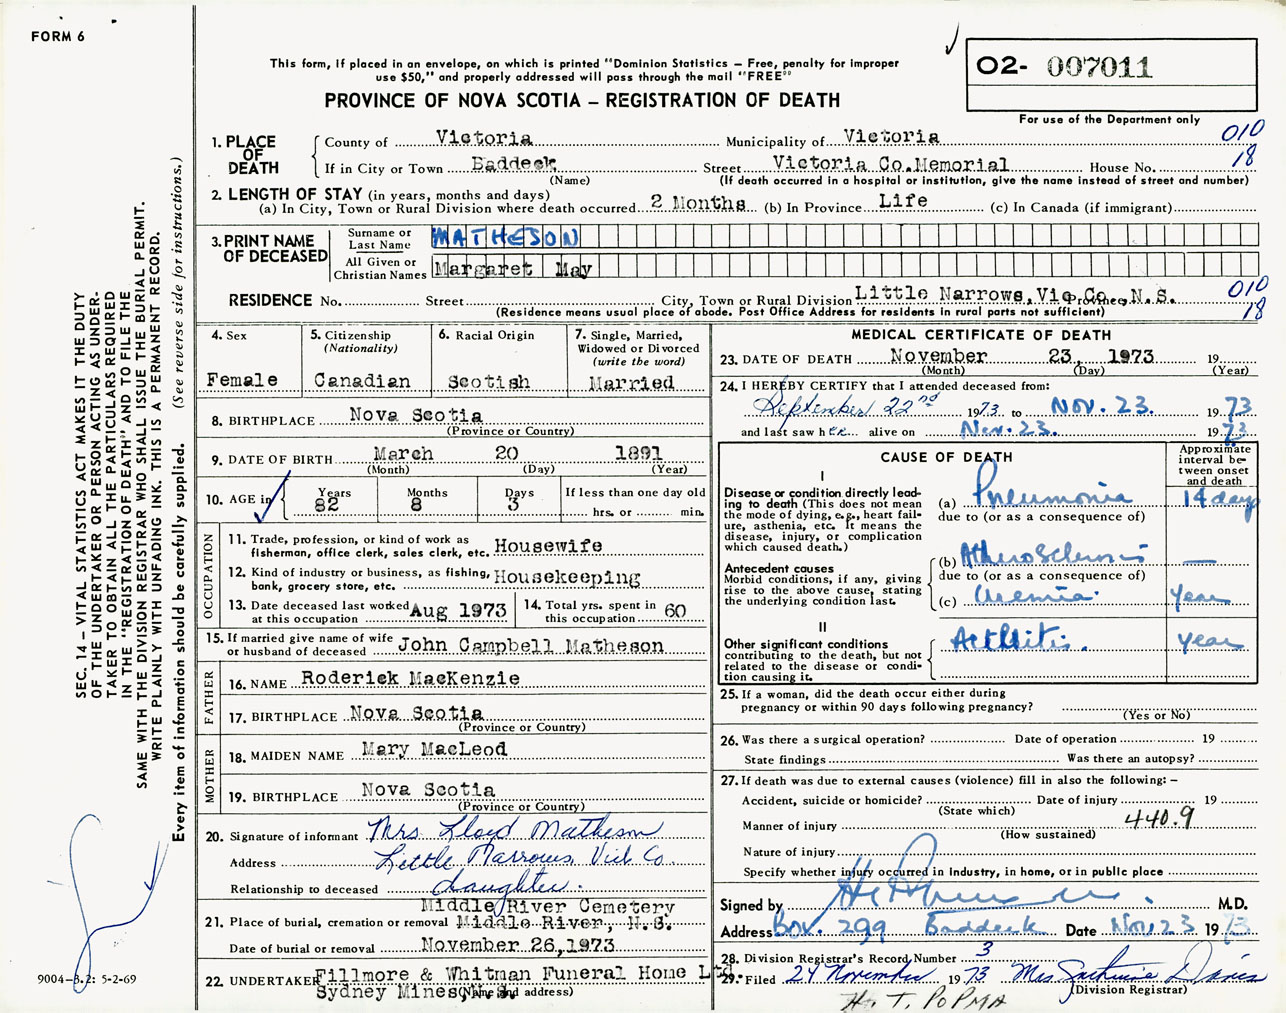 FORM 6
This form, if placed in an envelope, on which is printed "Dominion Statistics – Free, penalty for improper
use $50," and properly addressed will pass through the mail "FREE"
PROVINCE OF NOVA SCOTIA – REGISTRATION OF DEATH
O2- 007011
For use of the Department only
1. PLACE OF DEATH
County of Victoria Municipality of Victoria 010
If in City or Town Baddeck Street Victoria Co.Memorial House No. 18
(Name) (If death occurred in a hospital or institution, give the name instead of street and number)
2. LENGTH OF STAY (in years, months and days)
(a) In City, Town or Rural Division where death occurred 2 Months (b) In Province Life (c) In Canada (if immigrant)
3. PRINT NAME OF DECEASED
Surname or Last Name MATHESON
All Given or Christian Names Margaret May
RESIDENCE No. Street City, Town or Rural Division Little Narrows, Vic Co., N.S. Province 010
(Residence means usual place of abode. Post Office Address for residents in rural parts not sufficient) 18
4. Sex
Female
5. Citizenship
(Nationality)
Canadian
6. Racial Origin
Scotish
7. Single, Married,
Widowed or Divorced
(write the word)
Married
8. BIRTHPLACE Nova Scotia
(Province or Country)
9. DATE OF BIRTH March 20 1891
(Month) (Day) (Year)
10. AGE in
Years Months Days If less than one day old
82 8 3 hrs. or min.
OCCUPATION
11. Trade, profession, or kind of work as
fisherman, office clerk, sales clerk, etc. Housewife
12. Kind of industry or business, as fishing,
bank, grocery store, etc. Housekeeping
13. Date deceased last worked
at this occupation Aug 1973
14. Total yrs. spent in
this occupation 60
15. If married give name of wife
or husband of deceased John Campbell Matheson
FATHER
16. NAME Roderick MacKenzie
17. BIRTHPLACE Nova Scotia
(Province or Country)
MOTHER
18. MAIDEN NAME Mary MacLeod
19. BIRTHPLACE Nova Scotia
(Province or Country)
20. Signature of informant Mrs Lloyd Matheson
Address Little Narrows Vict Co.
Relationship to deceased daughter.
Middle River Cemetery
21. Place of burial, cremation or removal Middle River, N.S.
Date of burial or removal November 26,1973
22. UNDERTAKER Fillmore & Whitman Funeral Home Ltd.
Sydney Mines, N.S. (Name and address)
MEDICAL CERTIFICATE OF DEATH
23. DATE OF DEATH November 23, 1973 19
(Month) (Day) (Year)
24. I HEREBY CERTIFY that I attended deceased from:
September 22nd 1973 to NOV. 23. 1973
and last saw her alive on Nov. 23. 1973
CAUSE OF DEATH
Approximate
interval be-
tween onset
and death
I
Disease or condition directly lead-
ing to death (This does not mean
the mode of dying, e.g., heart fail-
ure, asthenia, etc. It means the
disease, injury, or complication
which caused death.)
(a) Pneumonia 14 days
due to (or as a consequence of)
Antecedent causes
Morbid conditions, if any, giving
rise to the above cause, stating
the underlying condition last.
(b) Atherosclerosis —
due to (or as a consequence of)
(c) Uremia. Year
II
Other significant conditions
contributing to the death, but not
related to the disease or condi-
tion causing it.
Arthritis. year
25. If a woman, did the death occur either during
pregnancy or within 90 days following pregnancy?
(Yes or No)
26. Was there a surgical operation? Date of operation 19
State findings Was there an autopsy?
27. If death was due to external causes (violence) fill in also the following: –
Accident, suicide or homicide? Date of injury 19
(State which)
Manner of injury 440.9
(How sustained)
Nature of injury
Specify whether injury occurred in industry, in home, or in public place
Signed by M.D.
Address Box. 299 Baddeck Date Nov. 23 1973
28. Division Registrar's Record Number 3
29. Filed 24 November 1973 Mrs Davis
(Division Registrar)
H. T. POPMA
SEC. 14 – VITAL STATISTICS ACT MAKES IT THE DUTY
OF THE UNDERTAKER OR PERSON ACTING AS UNDER-
TAKER TO OBTAIN ALL THE PARTICULARS REQUIRED
IN THE "REGISTRATION OF DEATH" AND TO FILE THE
SAME WITH THE DIVISION REGISTRAR WHO SHALL ISSUE THE BURIAL PERMIT.
WRITE PLAINLY WITH UNFADING INK. THIS IS A PERMANENT RECORD.
Every item of information should be carefully supplied. (See reverse side for instructions.)
9004-3.2: 5-2-69